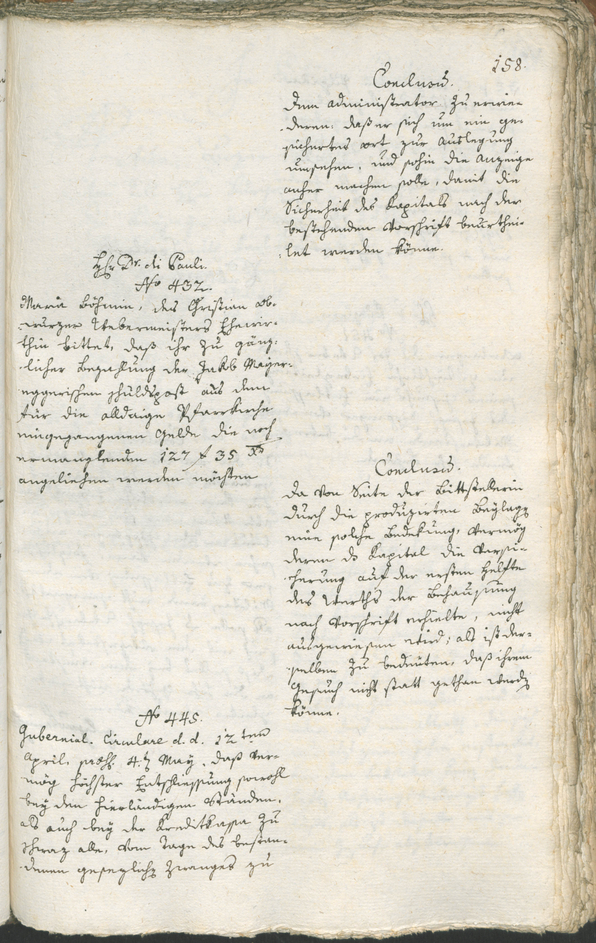 158.
Conclusū.
dem administrator zu erwie-
deren, daß er sich um ein ge-
suchertes ort zur Anlegung
umsehen, und sohin die Anzeige
anher machen solle, damit die
Sicherheit des Kapitals nach der
bestehenden Vorschrift beurthei-
let werden könne.
Hr Dr. di Pauli.
No 432.
Maria Böhmin, des Christian
Webermeisters Ehewir-
thin bittet, daß ihr zu gänz-
licher Bezahlung der Jakob Mayr-
eggerischen schuldpost aus dem
für die alldaige Pfarrkirche
eingegangenen Gelde die noch
ermanglenden 127 f 35 Xr
angeliehen werden möchten
Conclusū.
da von Seite der Bittstellerin
durch die produzirten Beylagen
eine solche Bedekung, vermög
deren ds Kapital die Versi-
cherung auf der ersten Helfte
des Werths der Behausung
nach Vorschrift erhielte, nicht
ausgewiesen wird; als ist der-
selben zu bedeuten, daß ihrem
Gesuch nicht statt gethan werden
könne.
No 445.
Gubernial. Circulare d. d. 12ten
April, 4t May, daß ver-
mög höchster Entschliessung sowohl
bey den hierländigen Ständen,
als auch bey der Kreditkassa zu
Schwaz alle, vom Tage des bestan-
denen gesezlichen Zwanges zu